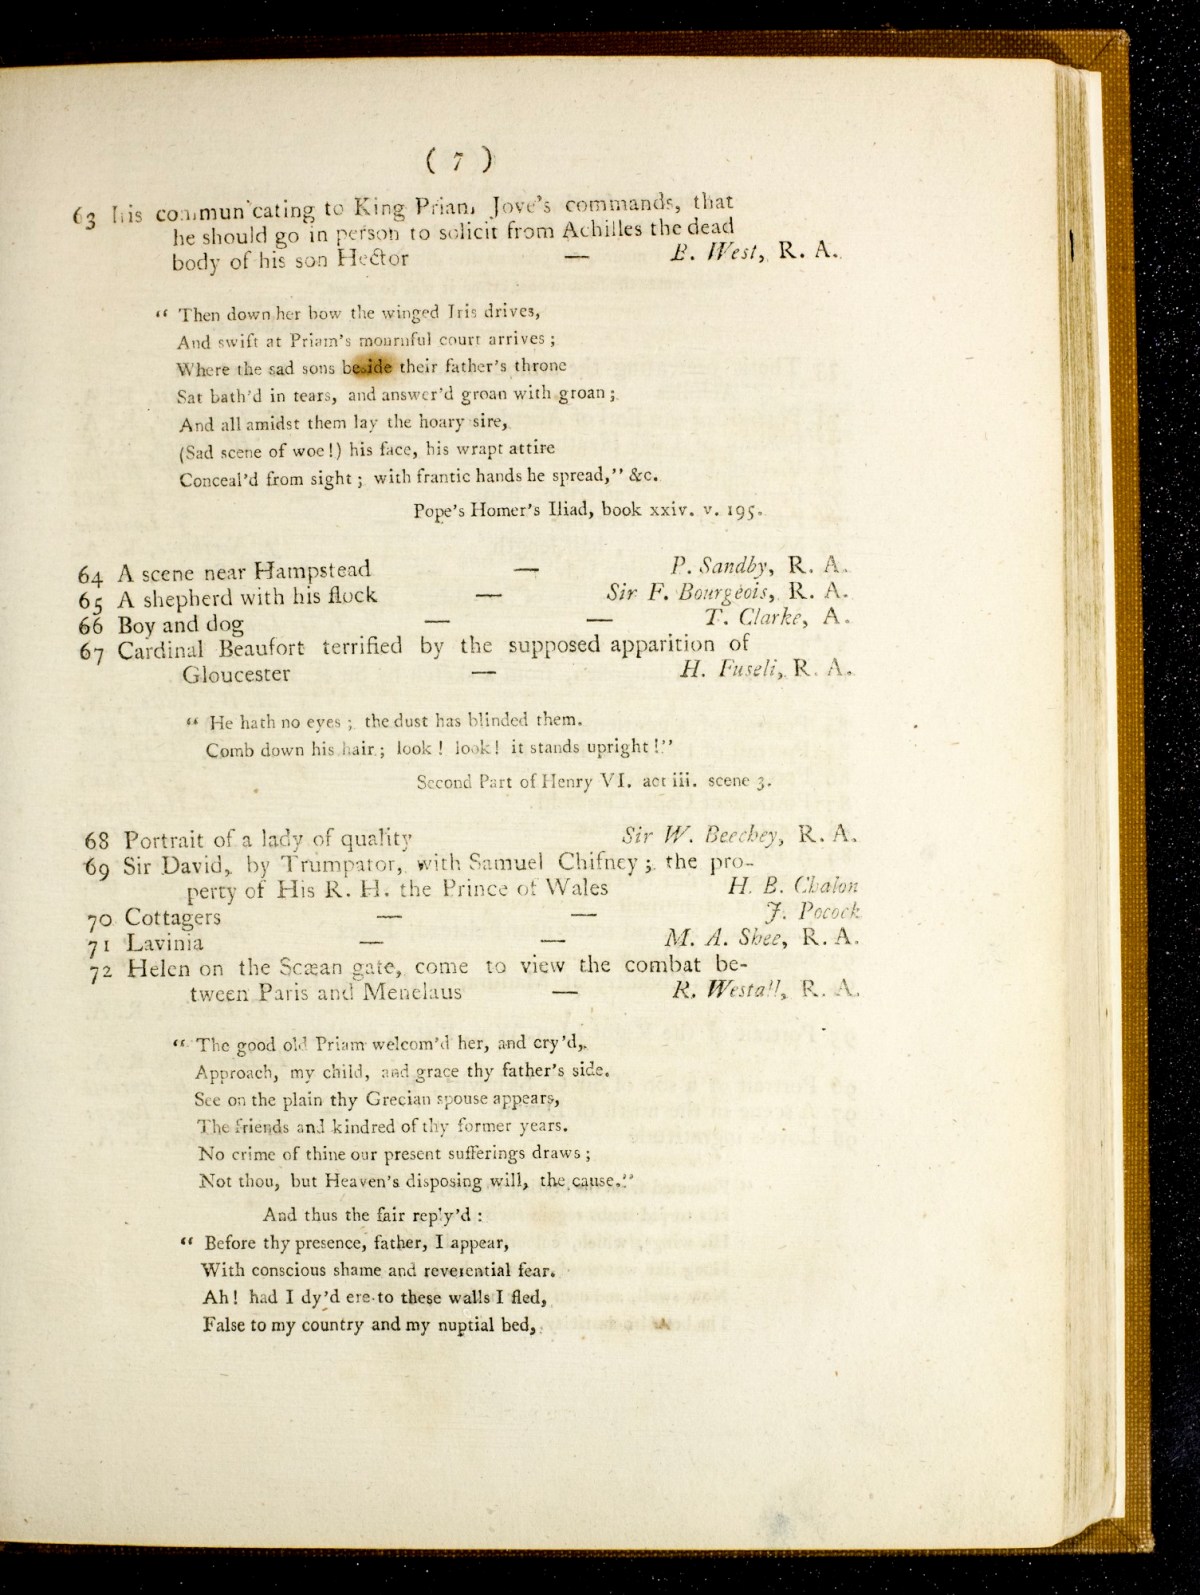 ( 7 )
63 Iris communicating to King Priam Jove's commands, that
he should go in person to solicit from Achilles the dead
body of his son Hector — B. West, R. A.
“ Then down her bow the winged Iris drives,
And swift at Priam's mournful court arrives ;
Where the sad sons beside their father's throne
Sat bath'd in tears, and answer'd groan with groan ;
And all amidst them lay the hoary sire,
(Sad scene of woe!) his face, his wrapt attire
Conceal'd from sight ; with frantic hands he spread,” &c.
Pope's Homer's Iliad, book xxiv. v. 195.
64 A scene near Hampstead — P. Sandby, R. A.
65 A shepherd with his flock — Sir F. Bourgeois, R. A.
66 Boy and dog — — T. Clarke, A.
67 Cardinal Beaufort terrified by the supposed apparition of
Gloucester — H. Fuseli, R. A.
“ He hath no eyes ; the dust has blinded them.
Comb down his hair ; look ! look ! it stands upright !”
Second Part of Henry VI. act iii. scene 3.
68 Portrait of a lady of quality Sir W. Beechey, R. A.
69 Sir David, by Trumpator, with Samuel Chifney ; the pro-
perty of His R. H. the Prince of Wales H. B. Chalon
70 Cottagers — — J. Pocock
71 Lavinia — — M. A. Shee, R. A.
72 Helen on the Scæan gate, come to view the combat be-
tween Paris and Menelaus — R. Westall, R. A.
“ The good old Priam welcom'd her, and cry'd,
Approach, my child, and grace thy father's side.
See on the plain thy Grecian spouse appears,
The friends and kindred of thy former years.
No crime of thine our present sufferings draws ;
Not thou, but Heaven's disposing will, the cause.”
And thus the fair reply'd :
“ Before thy presence, father, I appear,
With conscious shame and reverential fear.
Ah ! had I dy'd ere to these walls I fled,
False to my country and my nuptial bed,